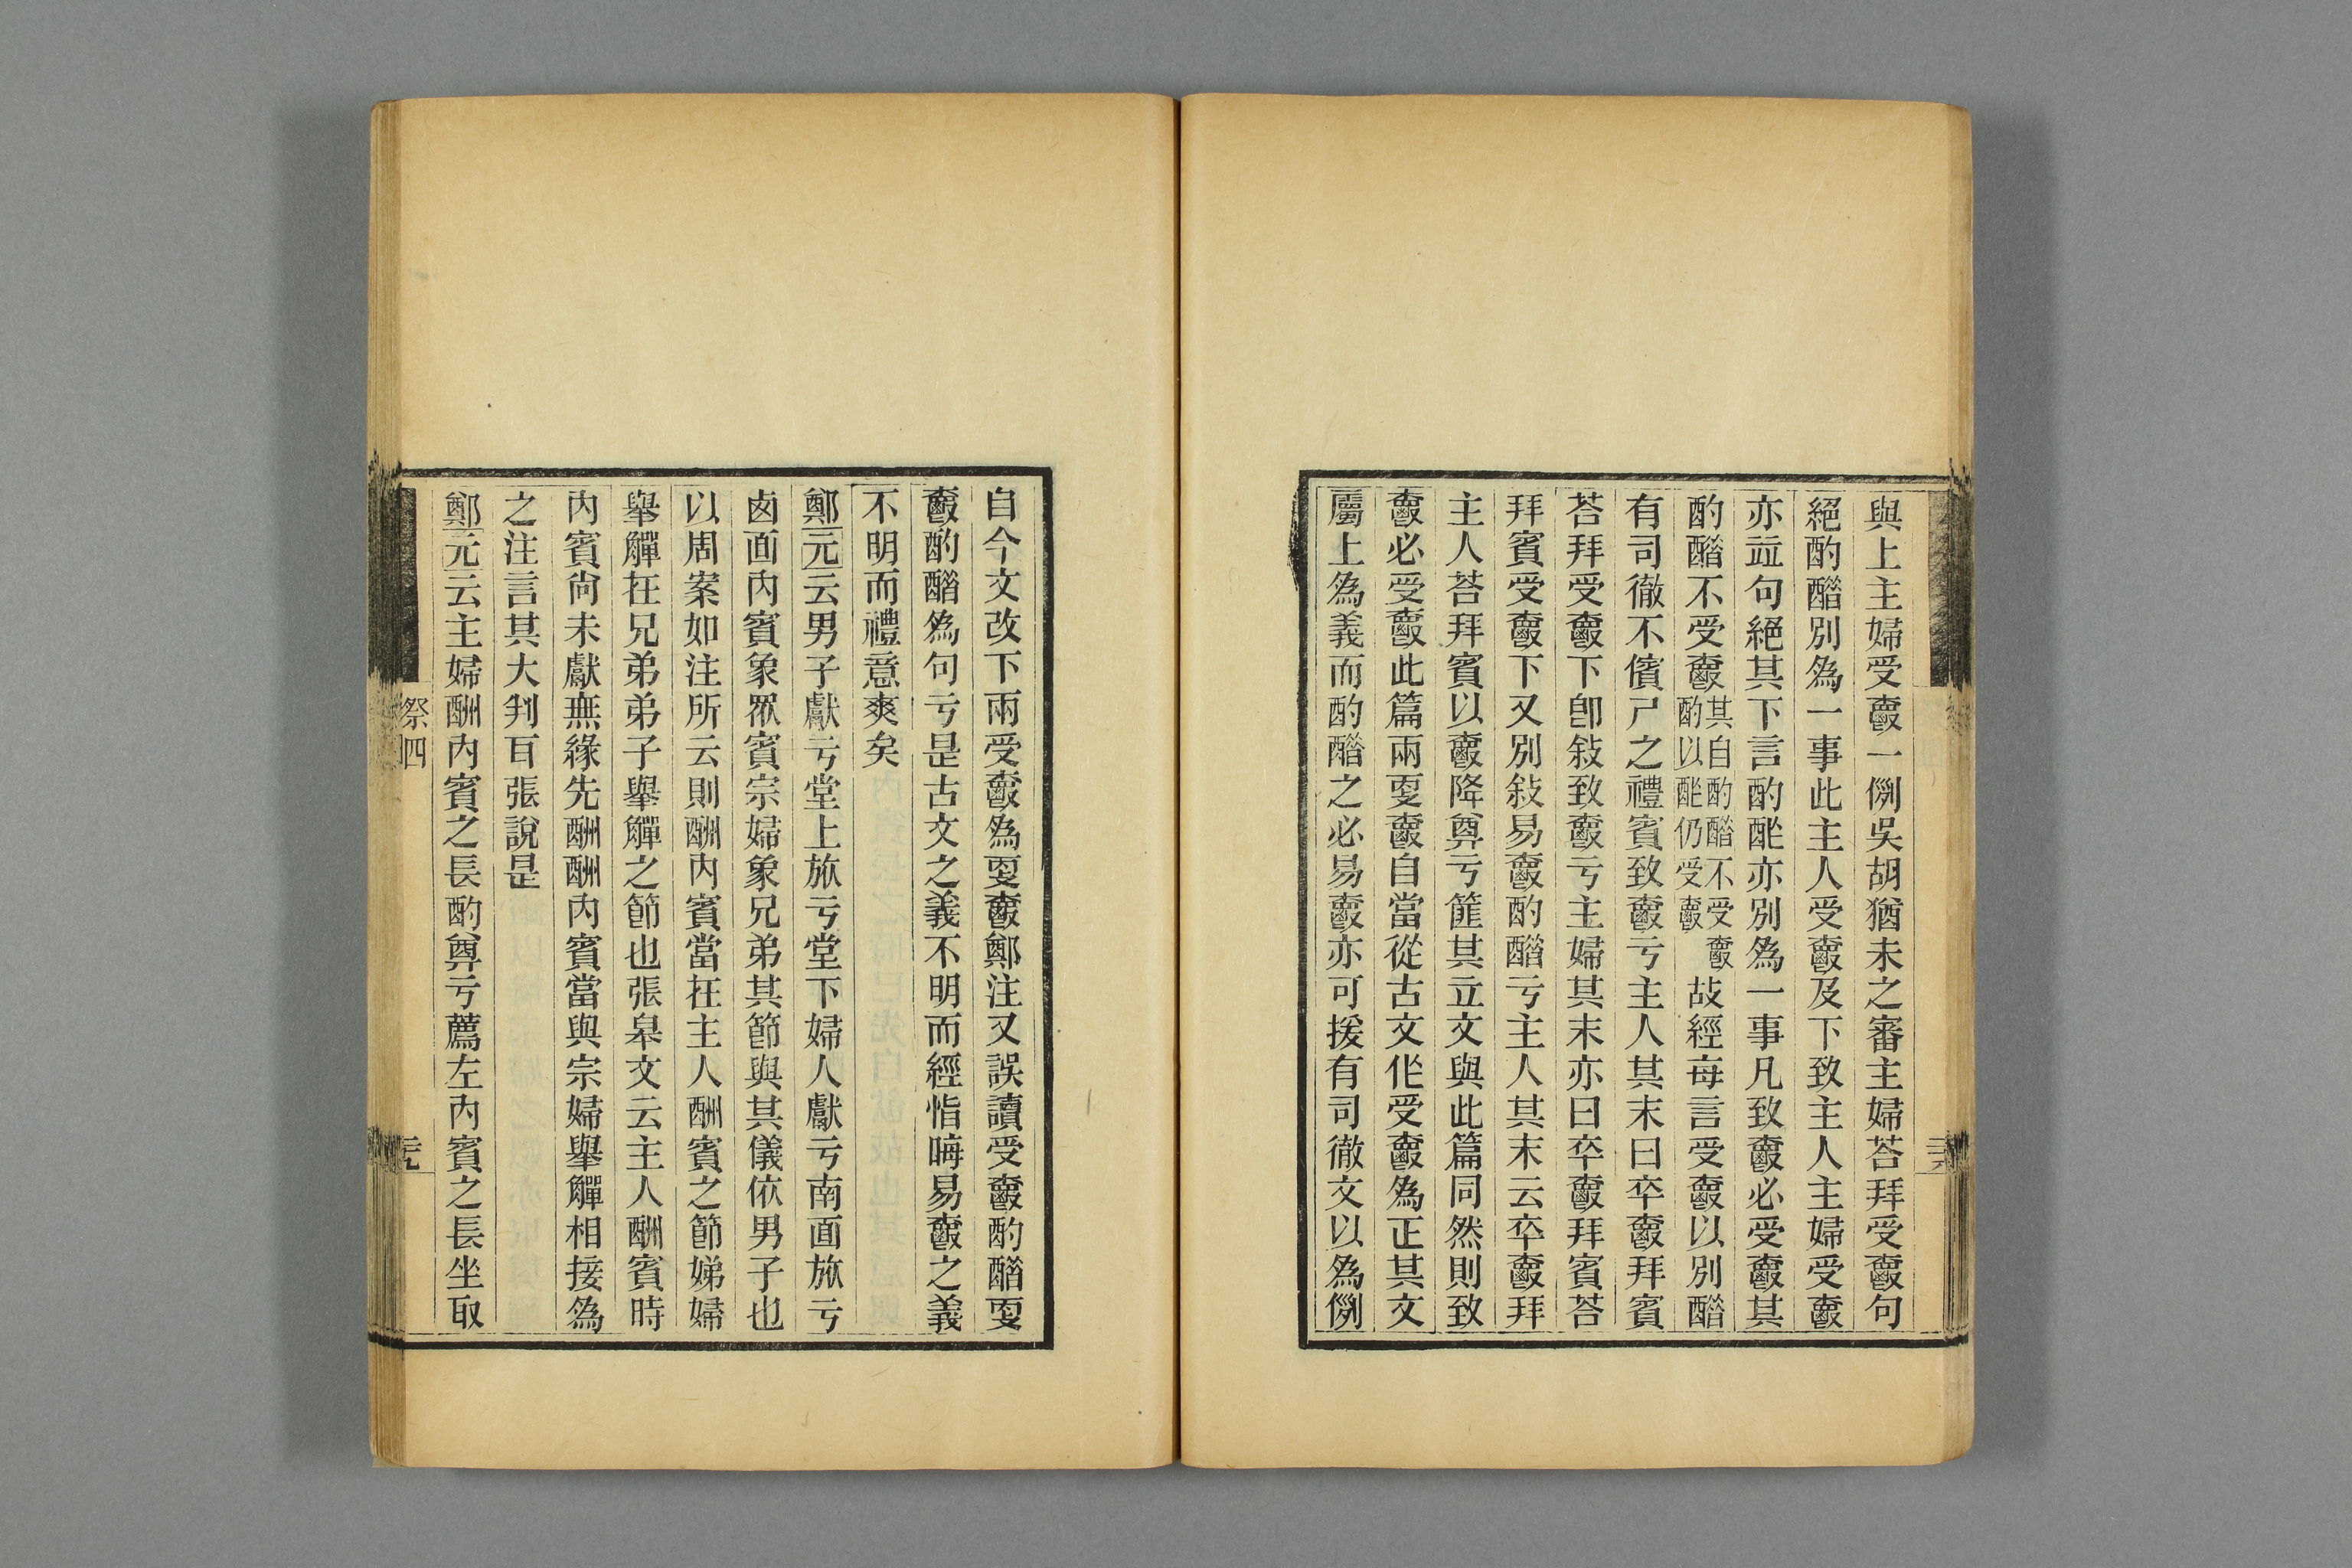 與上主婦受爵一例吳胡猶未之審主婦荅拜受爵句
絕酌醋別為一事此主人受爵及下致主人主婦受爵
亦竝句絕其下言酌酢亦別為一事凡致爵必受爵其
酌醋不受爵其自酌醋不受爵酌以酢仍受爵故經每言受爵以別醋
有司徹不儐尸之禮賓致爵亏主人其末曰卒爵拜賓
荅拜受爵下卽敍致爵亏主婦其末亦曰卒爵拜賓荅
拜賓受爵下又別敍易爵酌醋亏主人其末云卒爵拜
主人荅拜賓以爵降奠亏篚其立文與此篇同然則致
爵必受爵此篇兩更爵自當從古文作受爵為正其文
屬上為義而酌醋之必易爵亦可援有司徹文以為例
自今文改下兩受爵為更爵鄭注又誤讀受爵酌醋更
爵酌醋為句亏是古文之義不明而經恉晦易爵之義
不明而禮意爽矣
鄭元云男子獻亏堂上旅亏堂下婦人獻亏南面旅亏
卤面內賓象眾賓宗婦象兄弟其節與其儀依男子也
以周案如注所云則酬內賓當在主人酬賓之節娣婦
舉觶在兄弟弟子舉觶之節也張皋文云主人酬賓時
內賓尙未獻無緣先酬酬內賓當與宗婦舉觶相接為
之注言其大判百張說是
鄭元云主婦酬內賓之長酌奠亏薦左內賓之長坐取
祭四